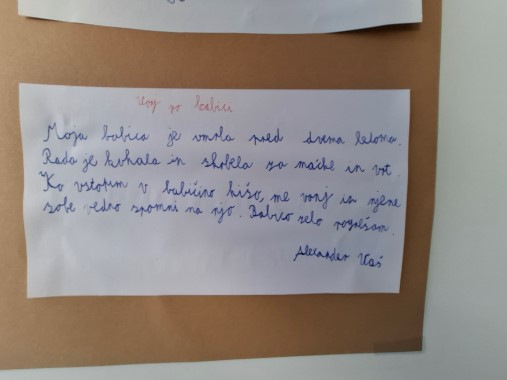 Vonj po babici
Moja babica je umrla pred dvema letoma.
Rada je kuhala in skrbela za mačke in vrt.
Ko vstopim v babičino hišo, me vonj iz njene
sobe vedno spomni na njo. Babico zelo pogrešam.
Alexander Vaš